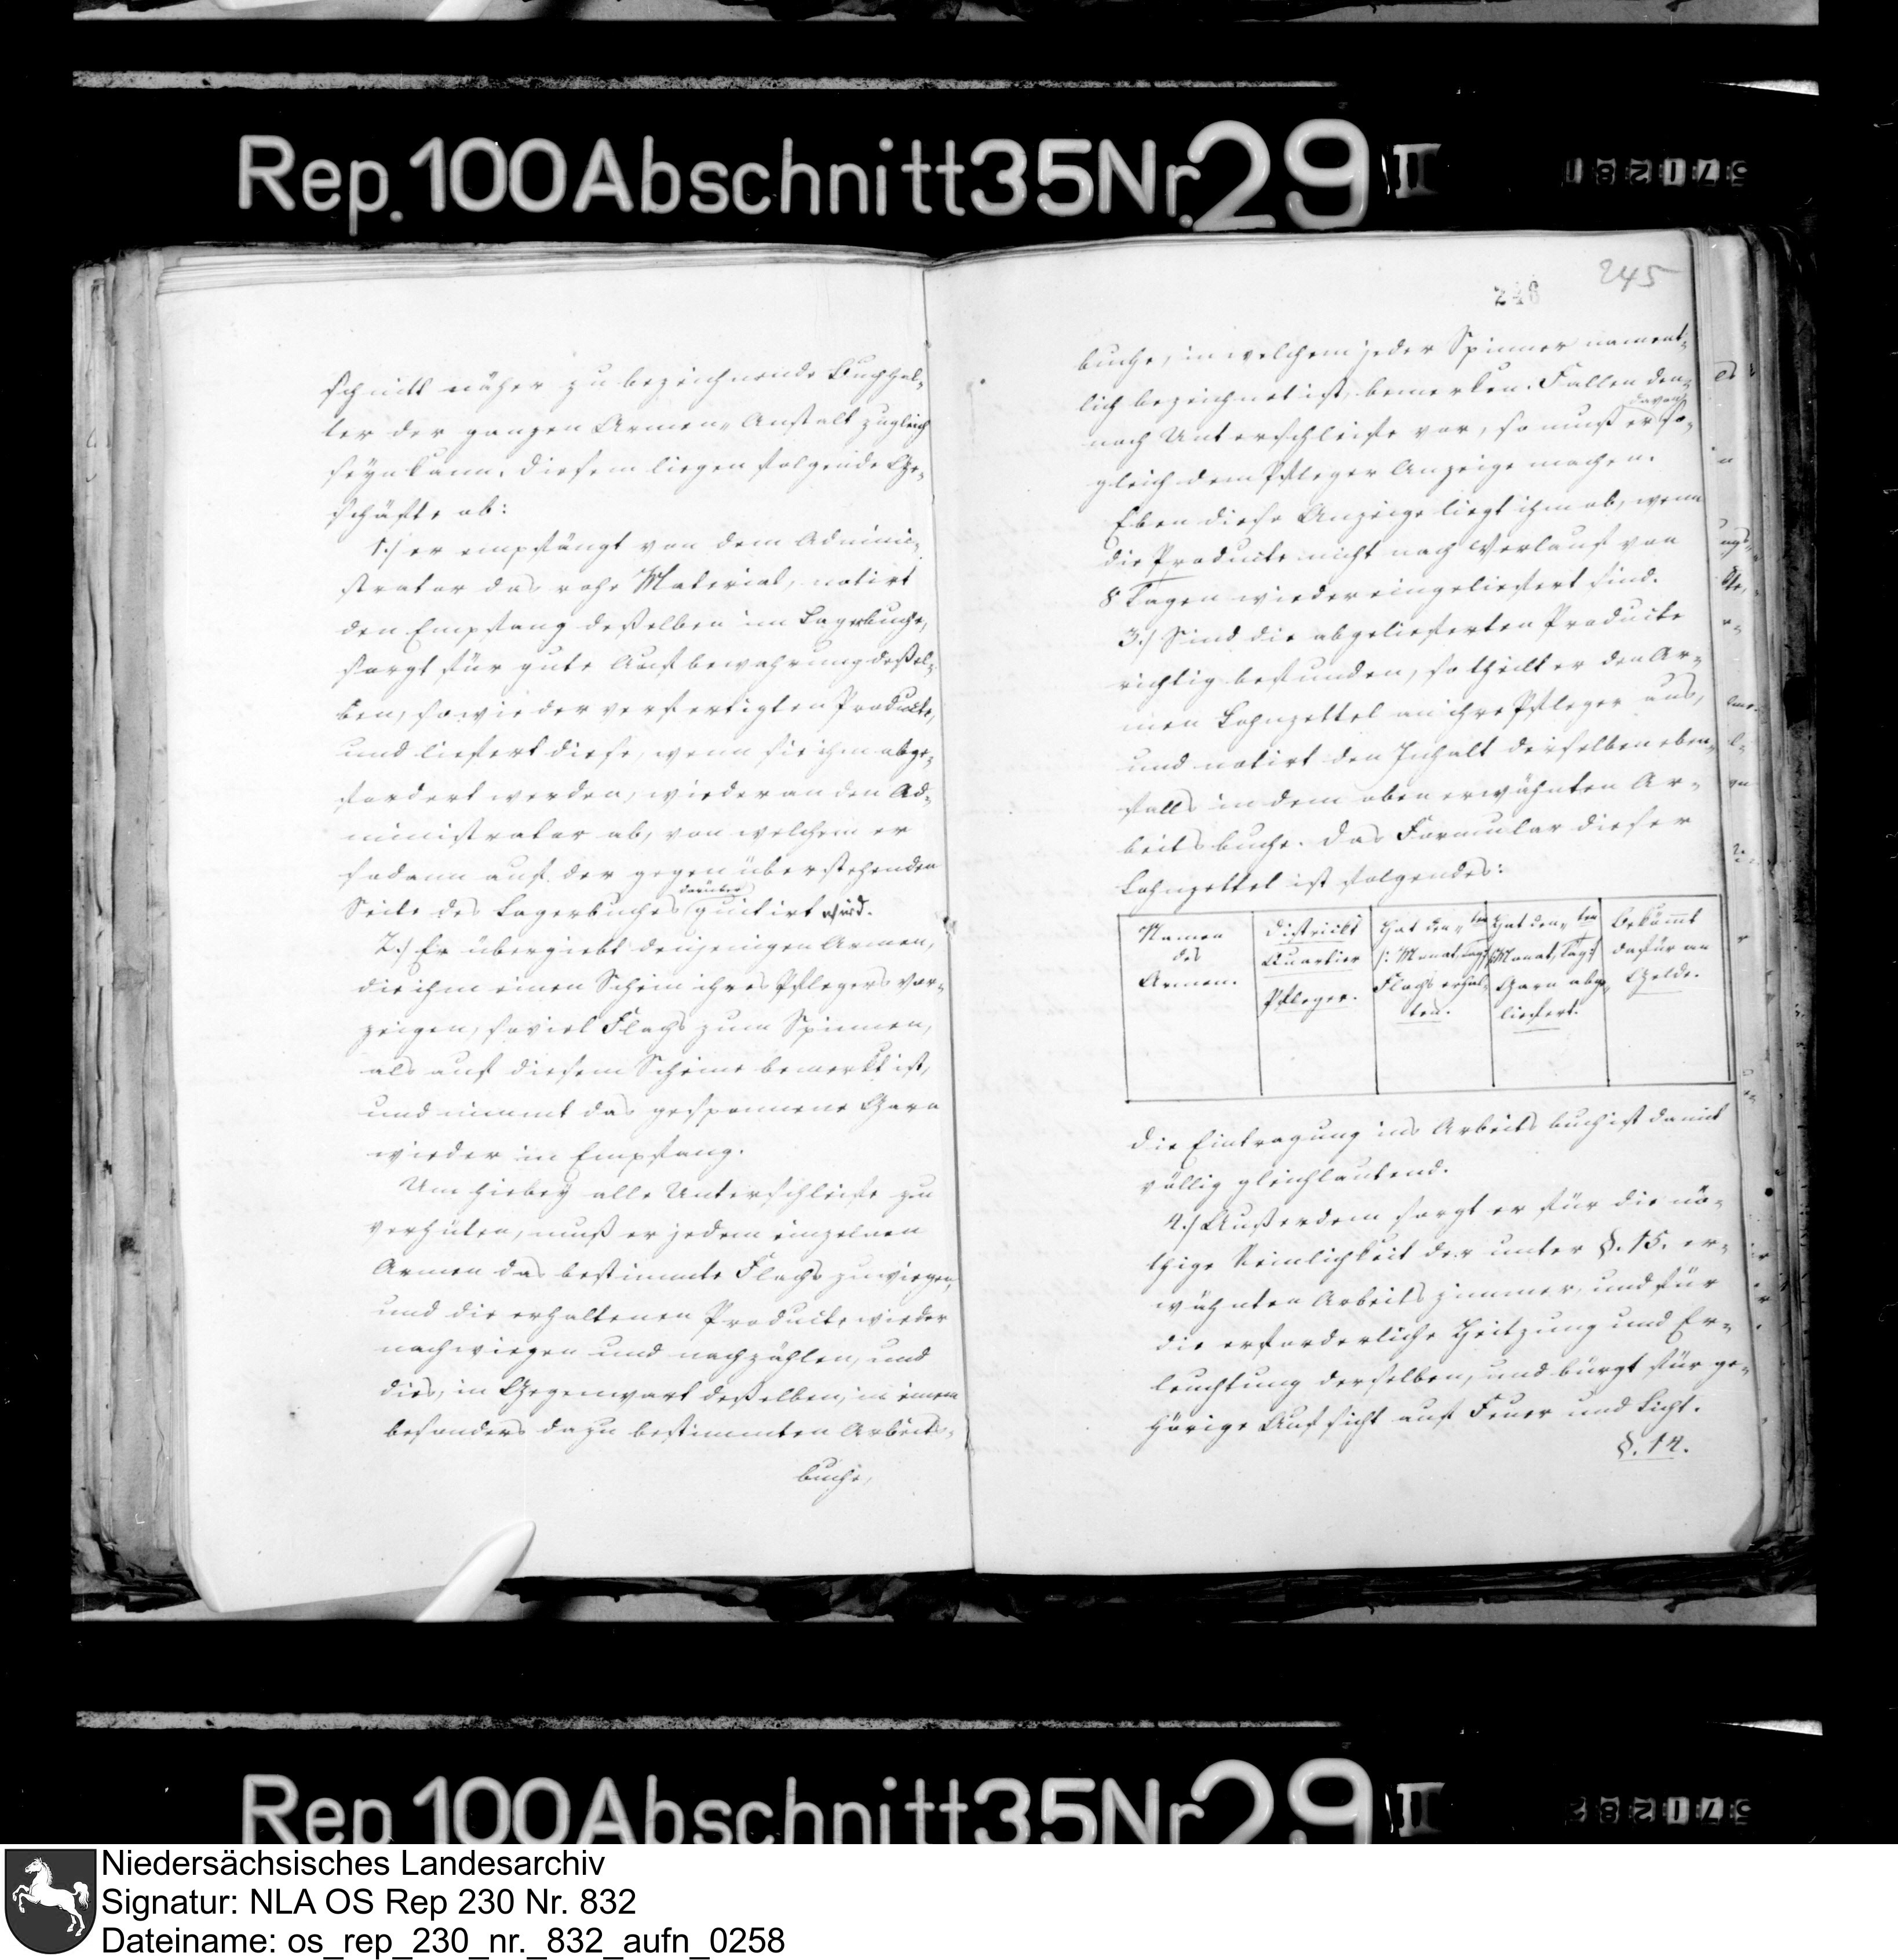 Rep. 100 Abschnitt 35 Nr. 29 II
571281
schnitt näher zu bezeichnende Buchhal-
ter der ganzen Armen-Anstalt zugleich
seyn kann. Diesem liegen folgende Ge-
schäfte ob:
1.) er empfängt von dem Admini-
strator das rohe Material, notirt
den Empfang deßelben im Lagerbuche,
sorgt für gute Aufbewahrung deßel-
ben, so wie der verfertigten Producte,
und liefert diese, wenn sie ihm abge-
fordert werden, wieder an den Ad-
ministrator ab, von welchem er
sodann auf der gegenüberstehenden
Seite des Lagerbuches darüber quitirt wird.
2.) Er übergiebt denjenigen Armen,
die ihm einen Schein ihres Pflegers vor-
zeigen, soviel Flachs zum Spinnen,
als auf diesem Scheine bemerkt ist,
und nimmt das gesponnene Garn
wieder in Empfang.
Um hiebey alle Unterschleife zu
verhüten, muß er jedem einzelnen
Armen das bestimmte Flachs zuwiegen,
und die erhaltenen Producte wieder
nachwiegen und nachzählen, und
dies, in Gegenwart deßelben, in einem
besonders dazu bestimmten Arbeits-
buche,
245
246
buche, in welchem jeder Spinner nament-
lich bezeichnet ist, bemerken. Fallen den-
noch Unterschleife vor, so muß er davon so-
gleich dem Pfleger Anzeige machen.
Eben diese Anzeige liegt ihm ob, wenn
die Producte nicht nach Verlauf von
8 Tagen wieder eingeliefert sind.
3.) Sind die abgelieferten Producte
richtig befunden, so theilt er den Ar-
men Lohnzettel an ihre Pfleger aus,
und notirt den Inhalt derselben eben-
falls in dem oben erwähnten Ar-
beitsbuche. Das Formular dieser
Lohnzettel ist folgendes:
Namen des Armen.
Districkt Quartier Pfleger.
Hat den ten /: Monat, Tag :/ Flachs erhal- ten.
Hat den ten /: Monat, Tag :/ Garn abge- liefert.
Bekömmt dafür an Gelde.
Die Eintragung ins Arbeitsbuch ist damit
völlig gleichlautend.
4.) Außerdem sorgt er für die nö-
thige Reinlichkeit der unter §. 15. er-
wähnten Arbeitszimmer, und für
die erforderliche Heitzung und Er-
leuchtung derselben, und bürgt für ge-
hörige Aufsicht auf Feuer und Licht.
§. 14.
Rep. 100 Abschnitt 35 Nr. 29 II
571282
Niedersächsisches Landesarchiv
Signatur: NLA OS Rep 230 Nr. 832
Dateiname: os_rep_230_nr._832_aufn_0258